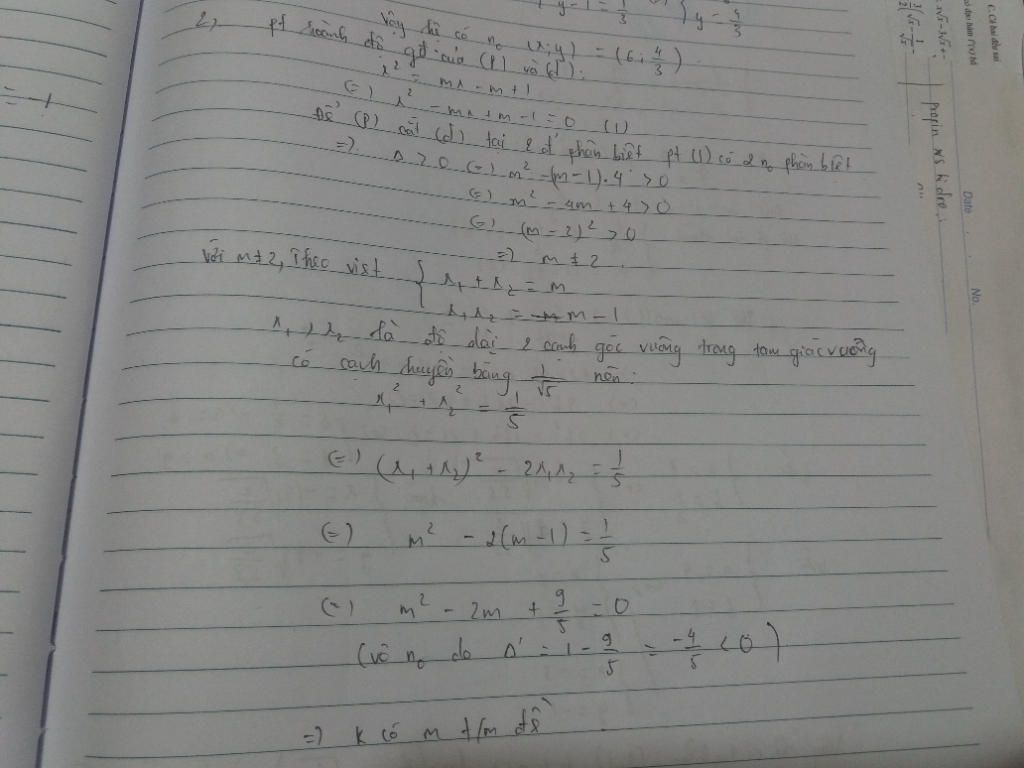 y-1=1/3 { y=4/3
Vậy hệ có n₀ (x;y) = (6; 4/3)
2, pt hoành độ gđ của (P) và (d):
x² = mx - m + 1
(=) x² - mx + m - 1 = 0 (1)
Để (P) cắt (d) tại 2 đ' phân biệt pt (1) có 2 n₀ phân biệt
=> Δ > 0 (=) m² - (m-1).4 > 0
(=) m² - 4m + 4 > 0
(=) (m-2)² > 0
=> m ≠ 2
Với m≠2, Theo viét { x₁ + x₂ = m
x₁x₂ = m - 1
x₁, x₂ là độ dài 2 cạnh góc vuông trong tam giác vuông
có cạnh huyền bằng 1/√5 nên:
x₁² + x₂² = 1/5
(=) (x₁+x₂)² - 2x₁x₂ = 1/5
(=) m² - 2(m-1) = 1/5
(=) m² - 2m + 9/5 = 0
(vô n₀ do Δ' = 1 - 9/5 = -4/5 < 0)
=> k có m t/m đề
= -1
Date
No.